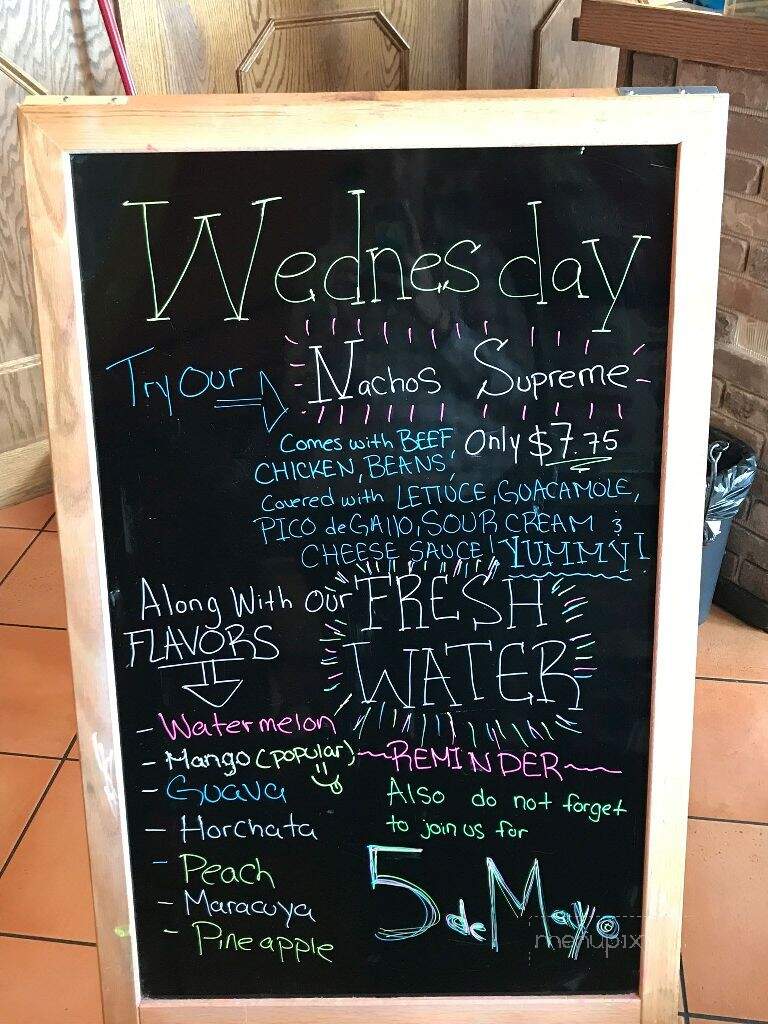 Wednesday
Try Our Nachos Supreme
Comes with BEEF, Only $7.75
CHICKEN, BEANS,
Covered with LETTUCE, GUACAMOLE,
PICO de GAllO, SOUR CREAM &
CHEESE SAUCE! YUMMY!
Along With Our FRESH
WATER
FLAVORS
- Watermelon
- Mango (popular)
- Guava
- Horchata
- Peach
- Maracuya
- Pineapple
~REMINDER~
Also do not forget
to join us for
5 de Mayo
menupix